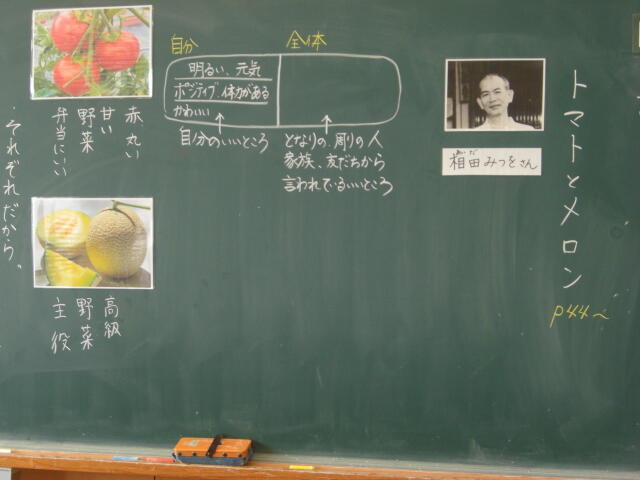 トマトとメロン
p44〜
相田みつをさん
あいだ
自分
全体
明るい、元気
ポジティブ、体力がある
かわいい
自分のいいところ
となりの、周りの人
家族、友だちから
言われているいいところ
赤、丸い
甘い
野菜
弁当にいい
高級
野菜
主役
それぞれだから。